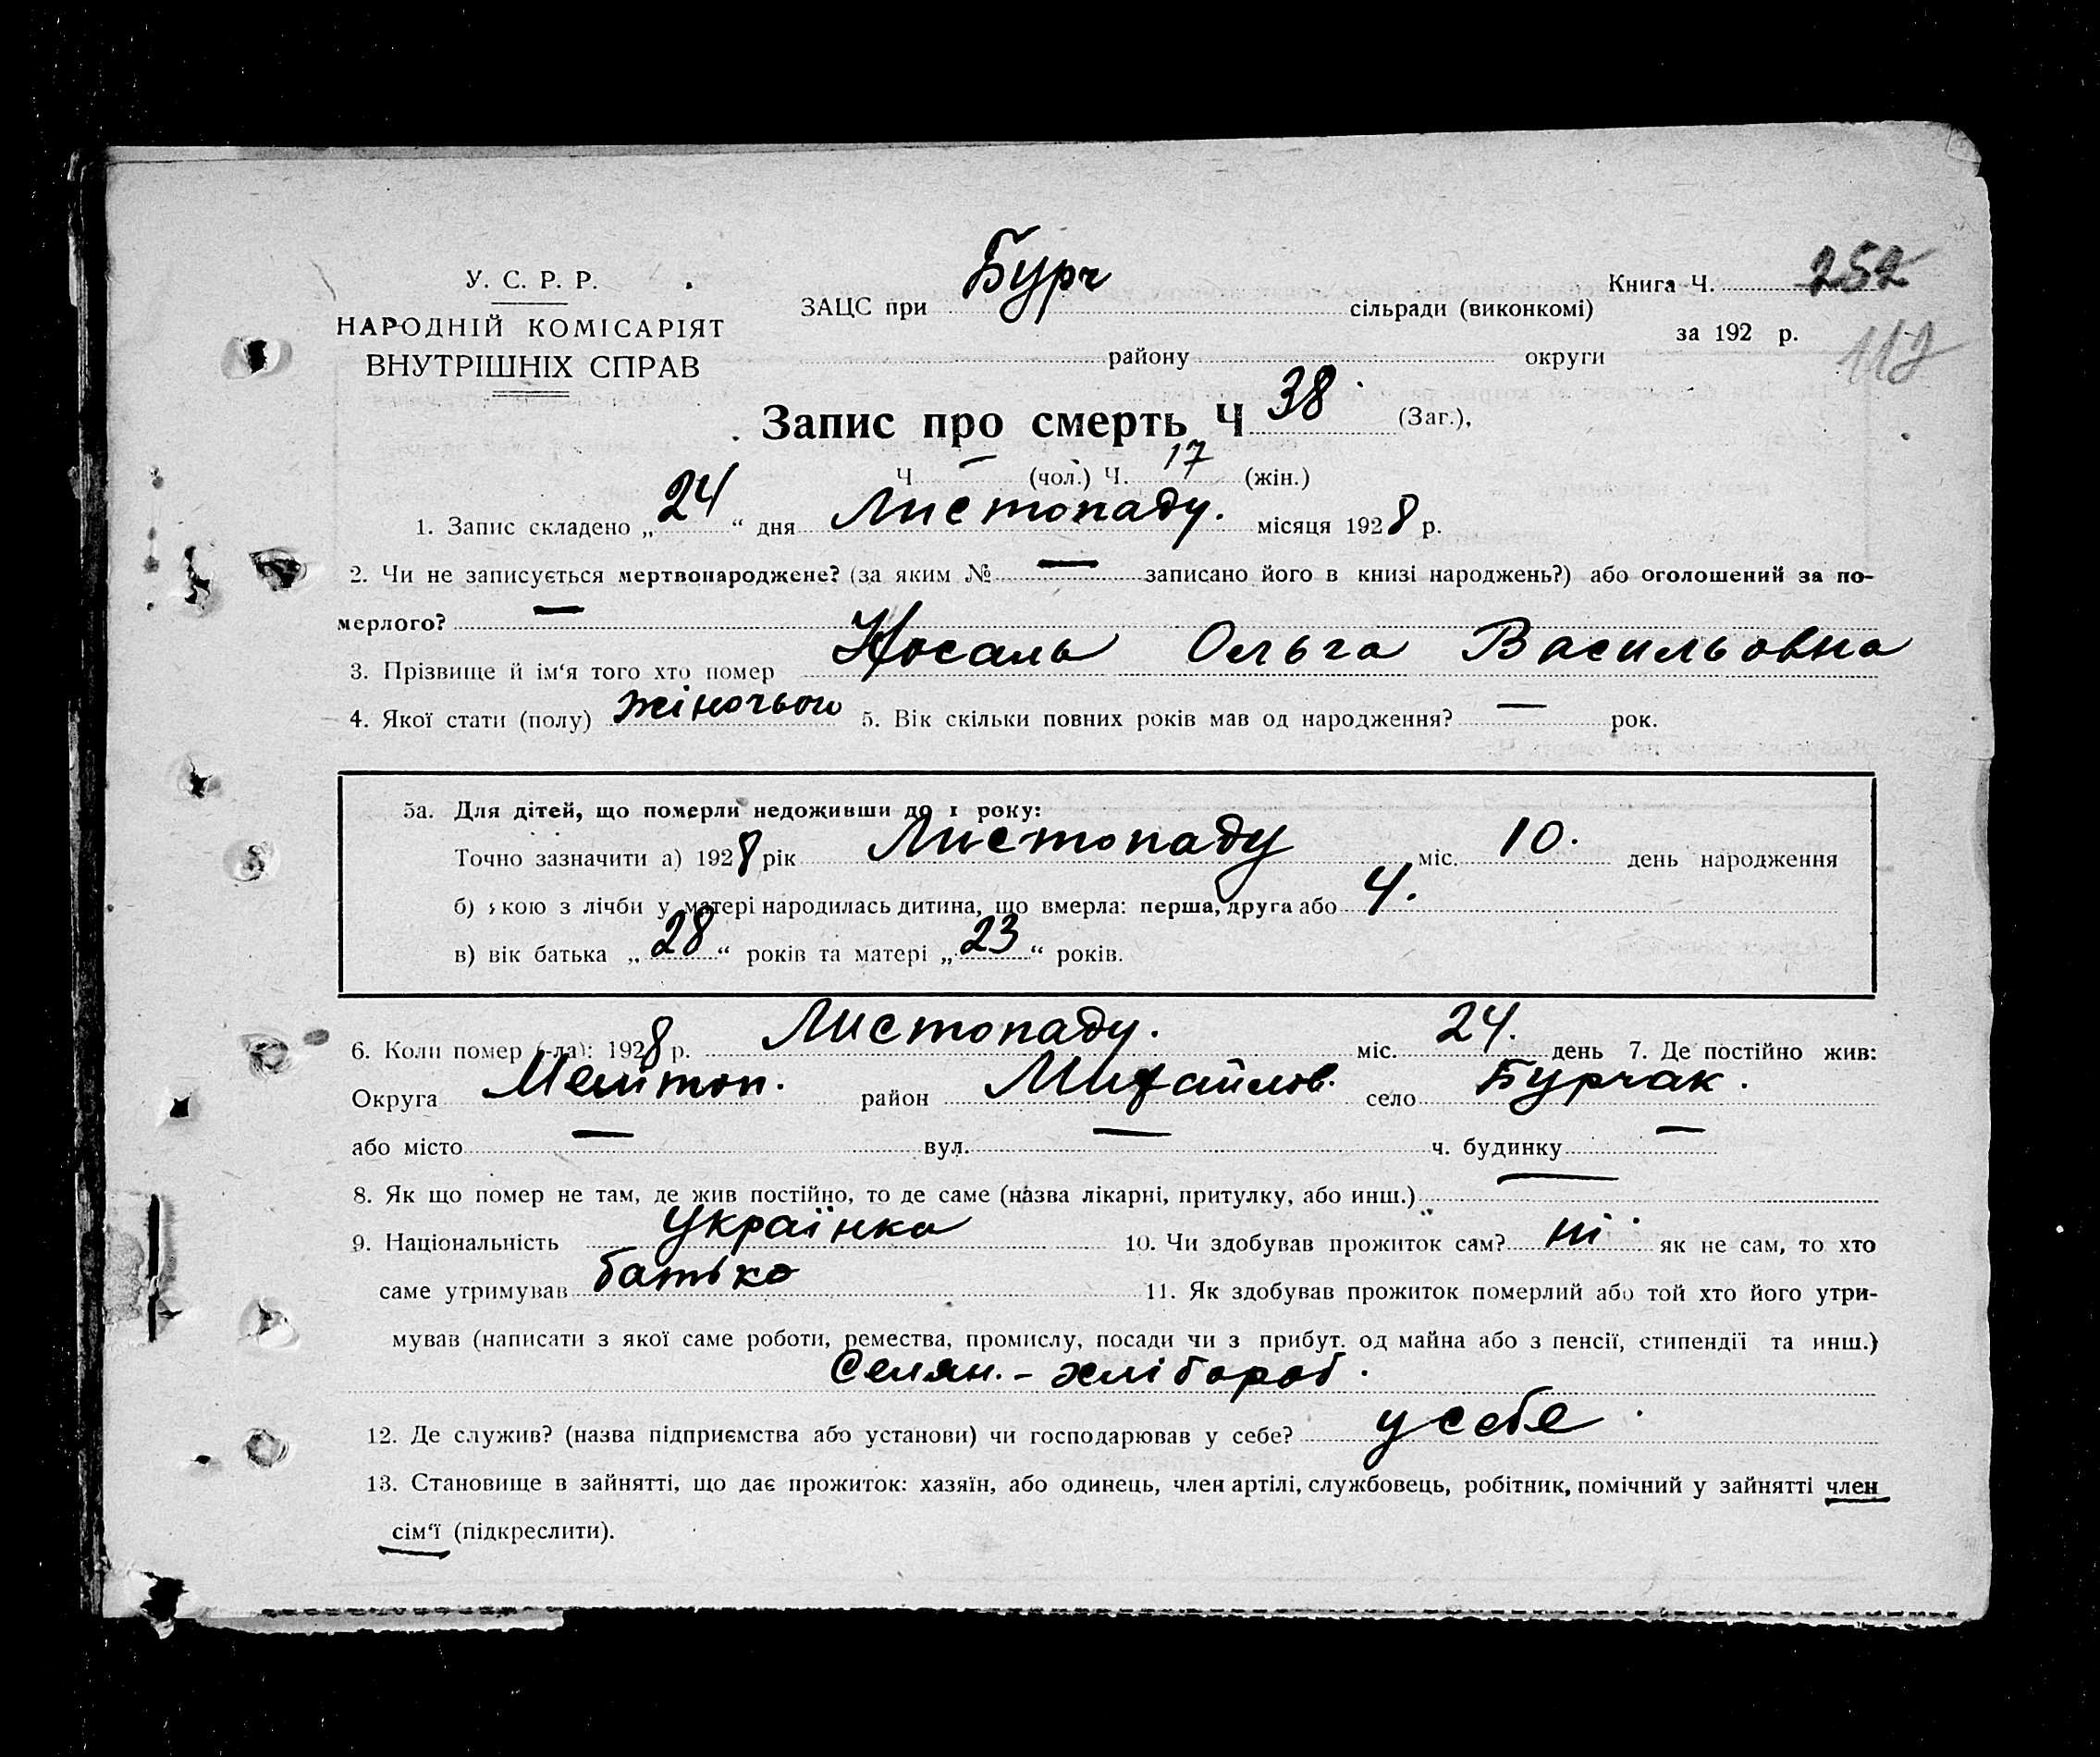 У. С. Р. Р.
НАРОДНІЙ КОМІСАРІЯТ
ВНУТРІШНІХ СПРАВ
ЗАЦС при Бурч сільради (виконкомі)
району округи
Книга Ч. 252
за 192 р.
Запис про смерть Ч 38 (Заг.),
Ч — (чол.) Ч. 17 (жін.)
1. Запис складено „24“ дня Листопаду. місяця 1928 р.
2. Чи не записується мертвонароджене? (за яким № — записано його в книзі народжень?) або оголошений за по-
мерлого? —
3. Прізвище й ім‘я того хто помер Носаль Ольга Васильовна
4. Якої стати (полу) жіночьои 5. Вік скільки повних років мав од народження? — рок.
5а. Для дітей, що померли недоживши до 1 року:
Точно зазначити а) 1928 рік Листопаду міс. 10. день народження
б) якою з лічби у матері народилась дитина, що вмерла: перша, друга або 4.
в) вік батька „28“ років та матері „23“ років.
6. Коли помер (-ла): 1928 р. Листопаду. міс. 24. день 7. Де постійно жив:
Округа Мелітоп. район Михайлов. село Бурчак.
або місто — вул. — ч. будинку —
8. Як що помер не там, де жив постійно, то де саме (назва лікарні, притулку, або инш.) —
9. Національність українка 10. Чи здобував прожиток сам? ні як не сам, то хто
саме утримував батько 11. Як здобував прожиток померлий або той хто його утри-
мував (написати з якої саме роботи, ремества, промислу, посади чи з прибут. од майна або з пенсії, стипендії та инш.)
Селян. - хлібороб.
12. Де служив? (назва підприємства або установи) чи господарював у себе? у себе
13. Становище в зайнятті, що дає прожиток: хазяїн, або одинець, член артілі, службовець, робітник, помічний у зайнятті член
сім‘ї (підкреслити).